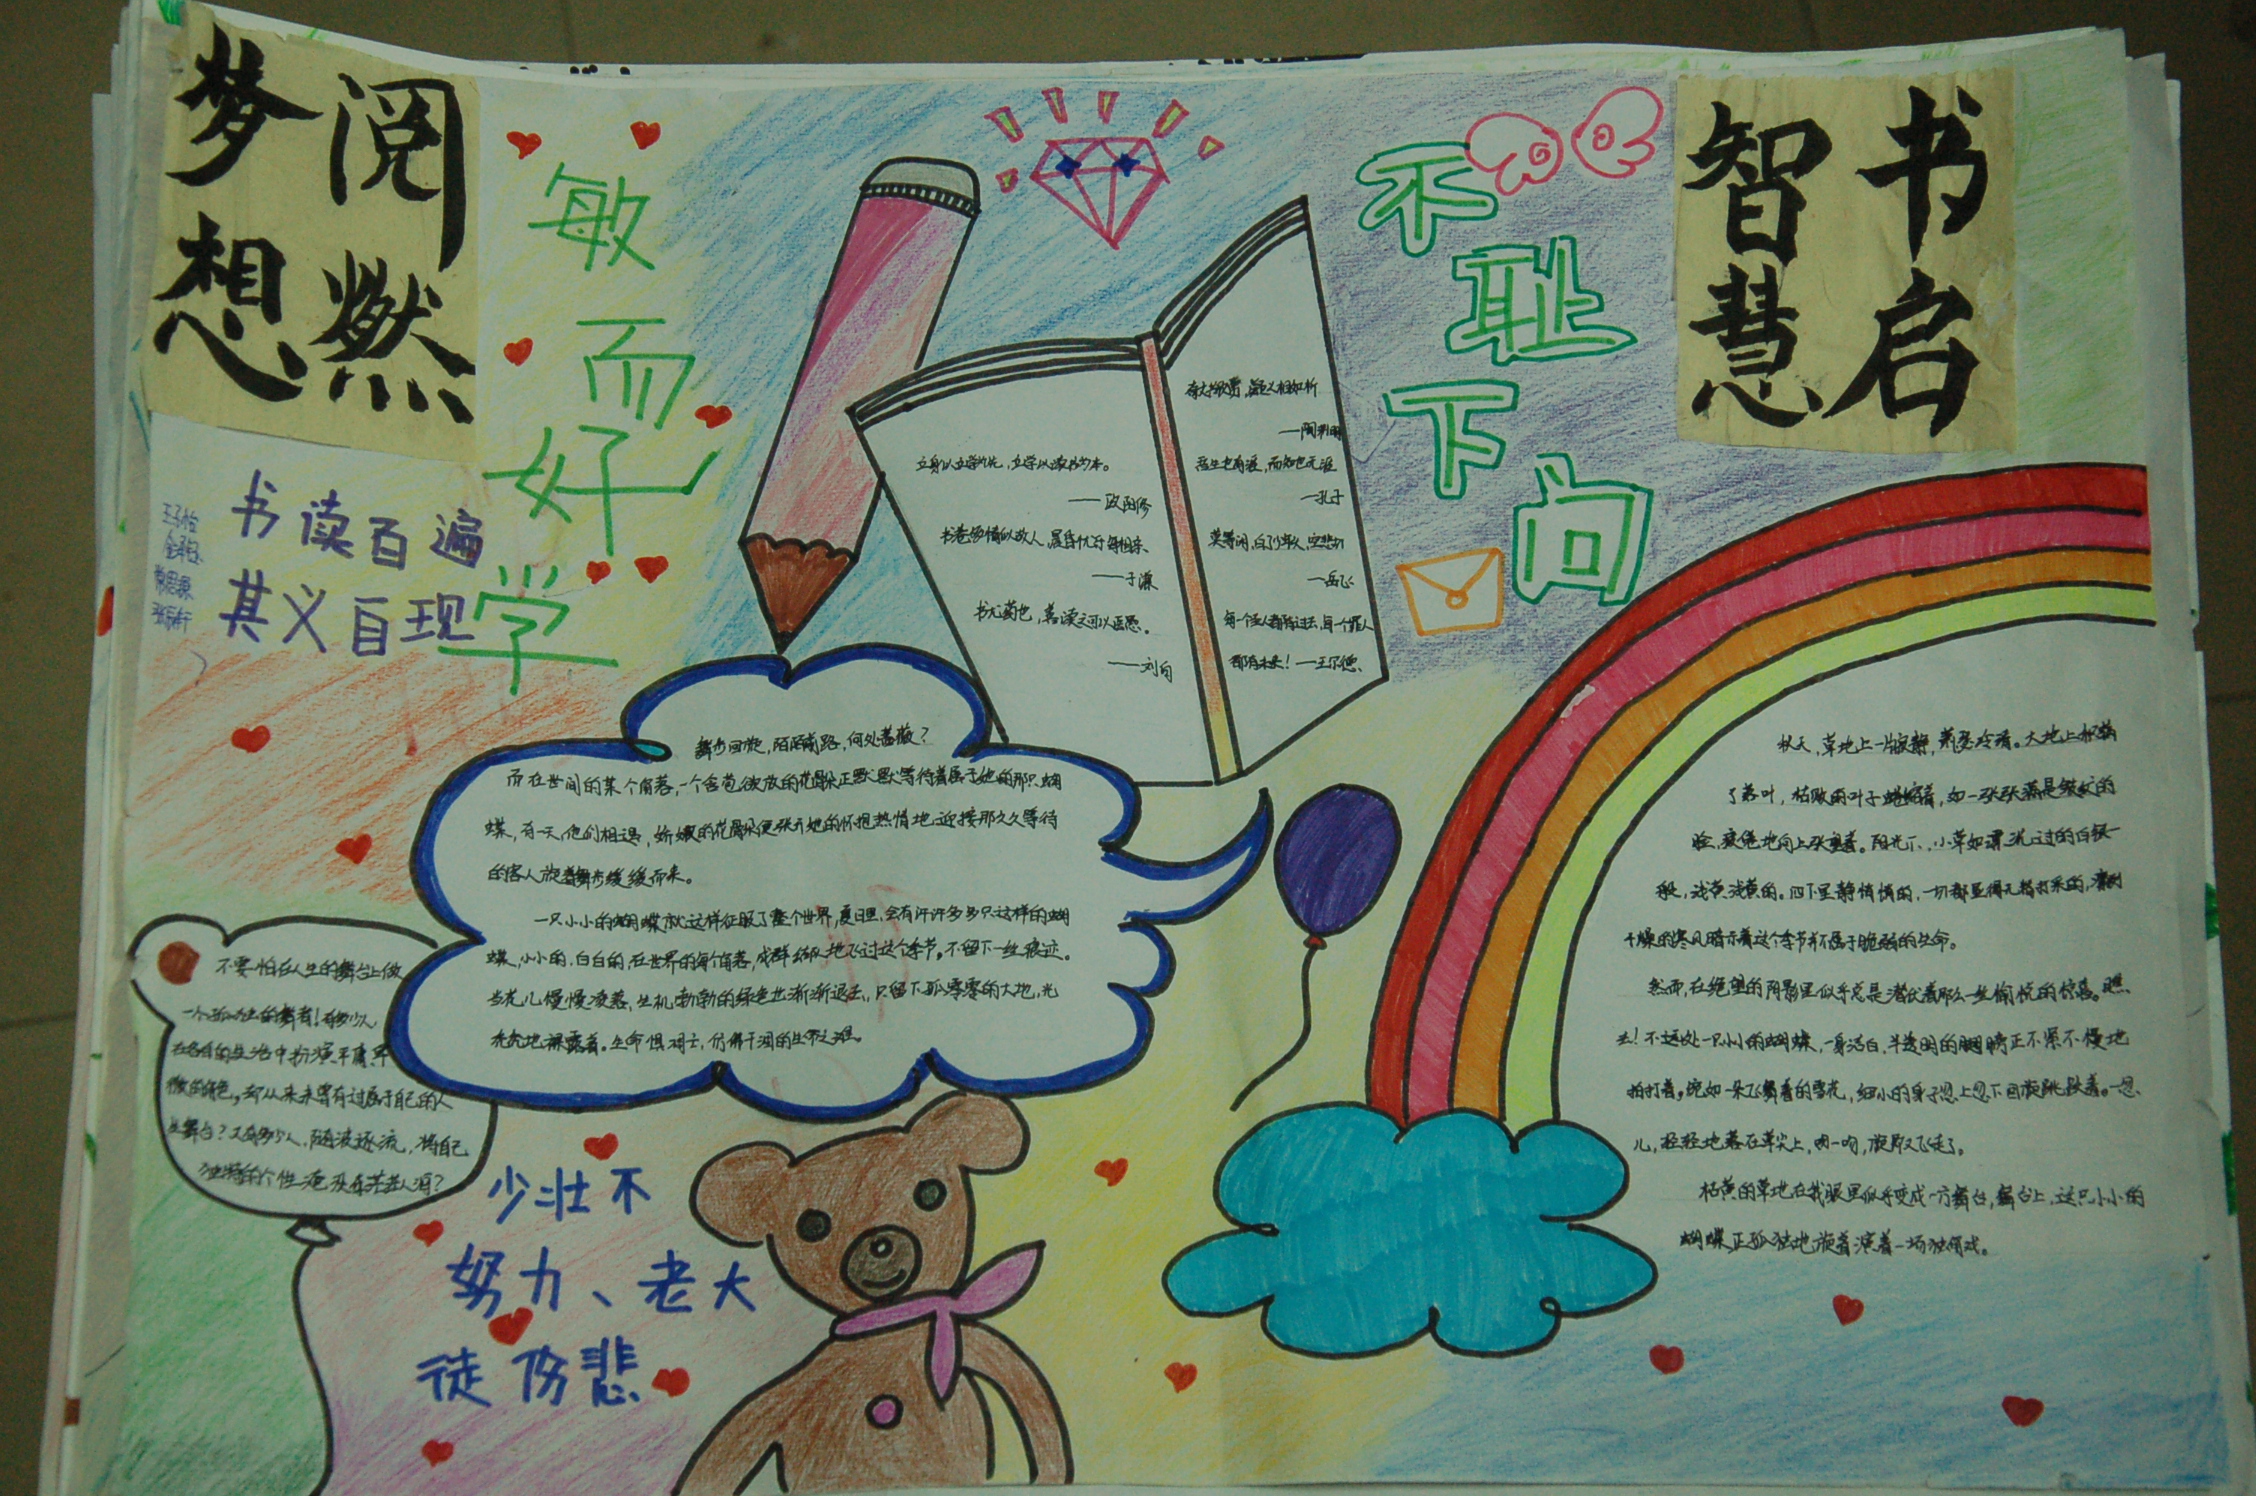 阅燃
梦想
书启
智慧
敏而好学
不耻下问
书读百遍
其义自现
立身以立学为先，立学以读书为本。
——欧阳修
书卷多情似故人，晨昏忧乐每相亲。
——于谦
书尤药也，善读之可以医愚。
——刘向
奇文共欣赏，疑义相如析
——陶渊明
吾生也有涯，而知也无涯
—孔子
莫等闲，白了少年头，空悲切
—岳飞
每一个圣人都有过去，每一个罪人
都有未来！——王尔德、
舞步回旋，陌陌前路，何处蔷薇？
而在世间的某个角落，一个含苞欲放的花朵正默默等待着属于她的那只蝴
蝶，有一天他们相遇，娇嫩的花朵便张开她的怀抱热情地迎接那久久等待
的客人旋着舞步缓缓而来。
一只小小的蝴蝶就这样征服了整个世界，夏日里，会有许许多多只这样的蝴
蝶，小小的，白白的，在世界的每个角落，成群结队地飞过这个季节。不留下一丝痕迹。
当花儿慢慢凌落，生机勃勃的绿色也渐渐退去，只留下孤零零的大地，光
秃秃地裸露着。生命惧于土，仿佛干涸的生命之泉。
不要怕在人生的舞台上做
一个孤独的舞者！有多少人
在各自的生活中扮演平庸卑
微的角色，却从来未曾有过属于自己的人
生舞台？又有多少人，随波逐流，将自己
独特的个性淹没在茫茫人海？
少壮不
努力、老大
徒伤悲
秋天，草地上一片寂静，萧瑟冷清。大地上积满
了落叶，枯败的叶子蜷缩着，如一张张满是皱纹的
脸，疲倦地向上张望着。阳光下，小草如漂洗过的白银一
般，浅黄浅黄的。四下里静悄悄的，一切都显得无精打采的，
干燥的寒风暗示着这个季节并不属于脆弱的生命。
然而，在绝望的阴影里似乎总是潜伏着那么一丝愉悦的惊喜。瞧
去！不远处一只小小的蝴蝶，一身洁白，半透明的翅膀正不紧不慢地
拍打着，宛如一朵飞舞着的雪花，细小的身子忽上忽下回旋跳跃着。一忽
儿，轻轻地落在草尖上，吻一吻，旋即又飞走了。
枯黄的草地在我眼里似乎变成一方舞台，舞台上，这只小小的
蝴蝶正孤独地旋着演着一场独角戏。